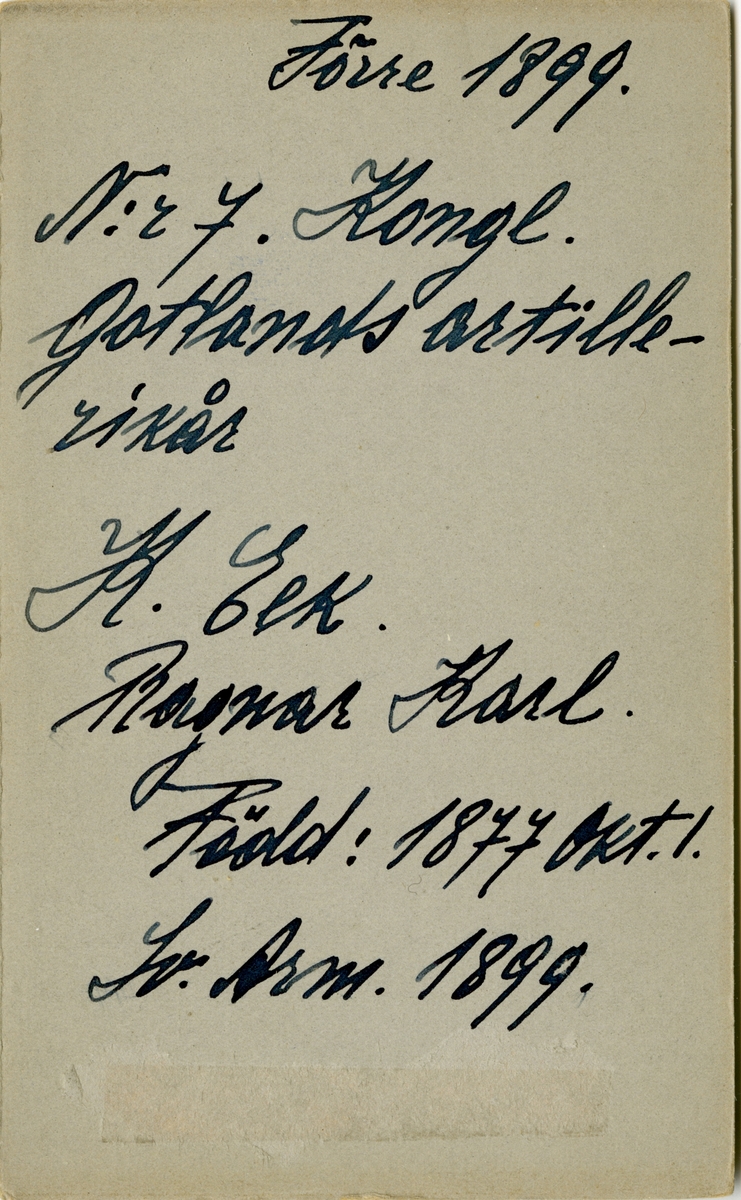 Förre 1899.
N:r 7. Kongl.
Gotlands artille-
rikår
K. Eek.
Ragnar Karl.
Född: 1877 Okt. 1.
Sv. Arm. 1899.